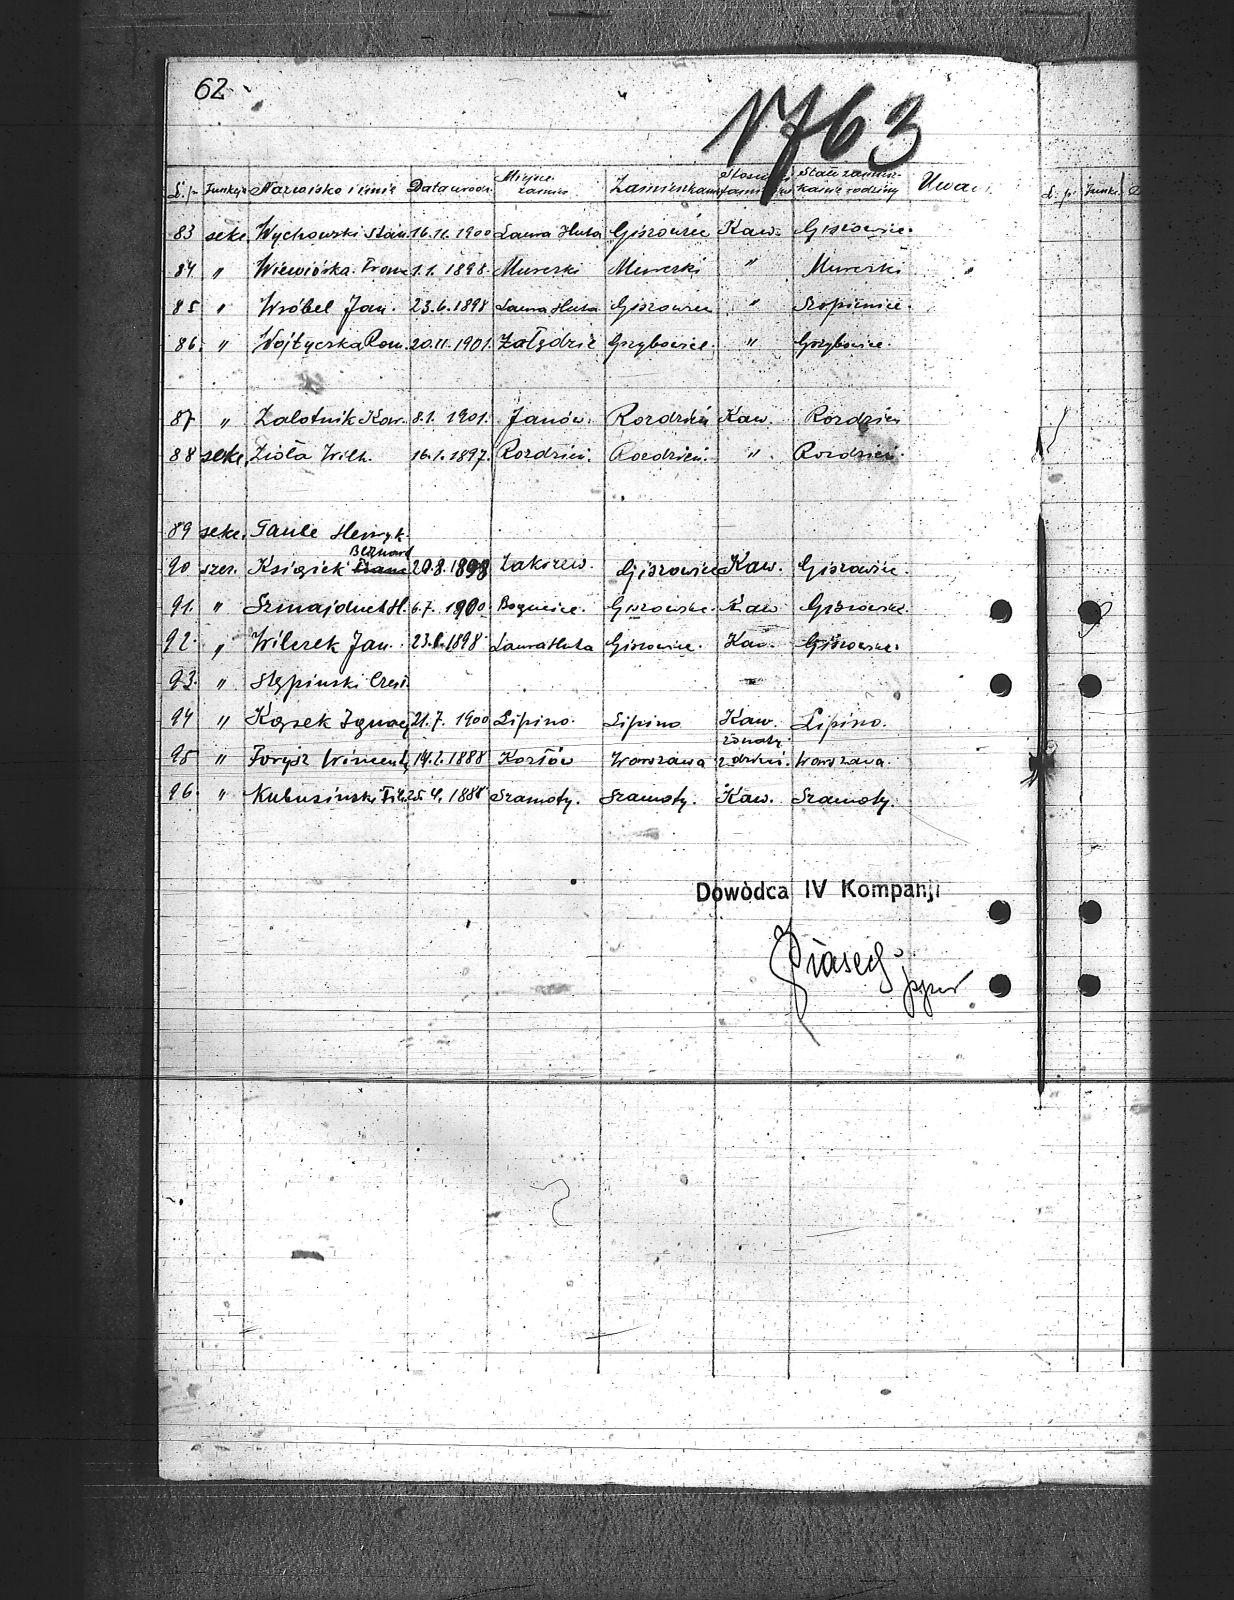 62
1763
L. p. Funkcja Nazwisko i imię Data urodz. Miejsce Zamieszkanie Stosunki Stałe zamiesz-
kanie rodziny Uwagi L. p. Funkc.
83 sekc. Wychowski Stan. 16.11.1900 Laura Huta Giszowiec Kaw. Giszowiec.
84 " Wiewiórka Franc. 1.1.1898. Murcki Murcki " Murcki "
85 " Wróbel Jan. 23.6.1898 Laura Huta Giszowiec " Szopienice.
86. " Wojtyczka Rom. 20.11.1901. Załędzie Grzybowice. " Grzybowice.
87 " Zalotnik Kaw. 8.1.1901. Janów. Rozdzień Kaw. Rozdzień
88 sekc. Zioła Wilh. 16.1.1897. Rozdzień. Rozdzień. " Rozdzień.
89 sekc. Taube Henryk.
Bernard
90 szer. Książek 20.8.1898 Zakrzew. Giszowiec Kaw. Giszowiec.
91. " Szmajduch H. 6.7.1900 Bogucice. Giszowiec Kaw Giszowiec.
92. " Wilczek Jan. 23.8.1898 Laura Huta Giszowiec. Kaw. Giszowiec.
93. " Stępinski Czesł.
94 " Kozek Ignacy 21.7.1900 Lipino. Lipino Kaw. Lipino.
żonaty
95 " Foryś Wincenty 14.2.1888 Kozłów Warszawa 2 dzieci. Warszawa.
96. " Kubusiński 25.4.1888 Szamoty. Szamoty. Kaw. Szamoty.
Dowódca IV Kompanji